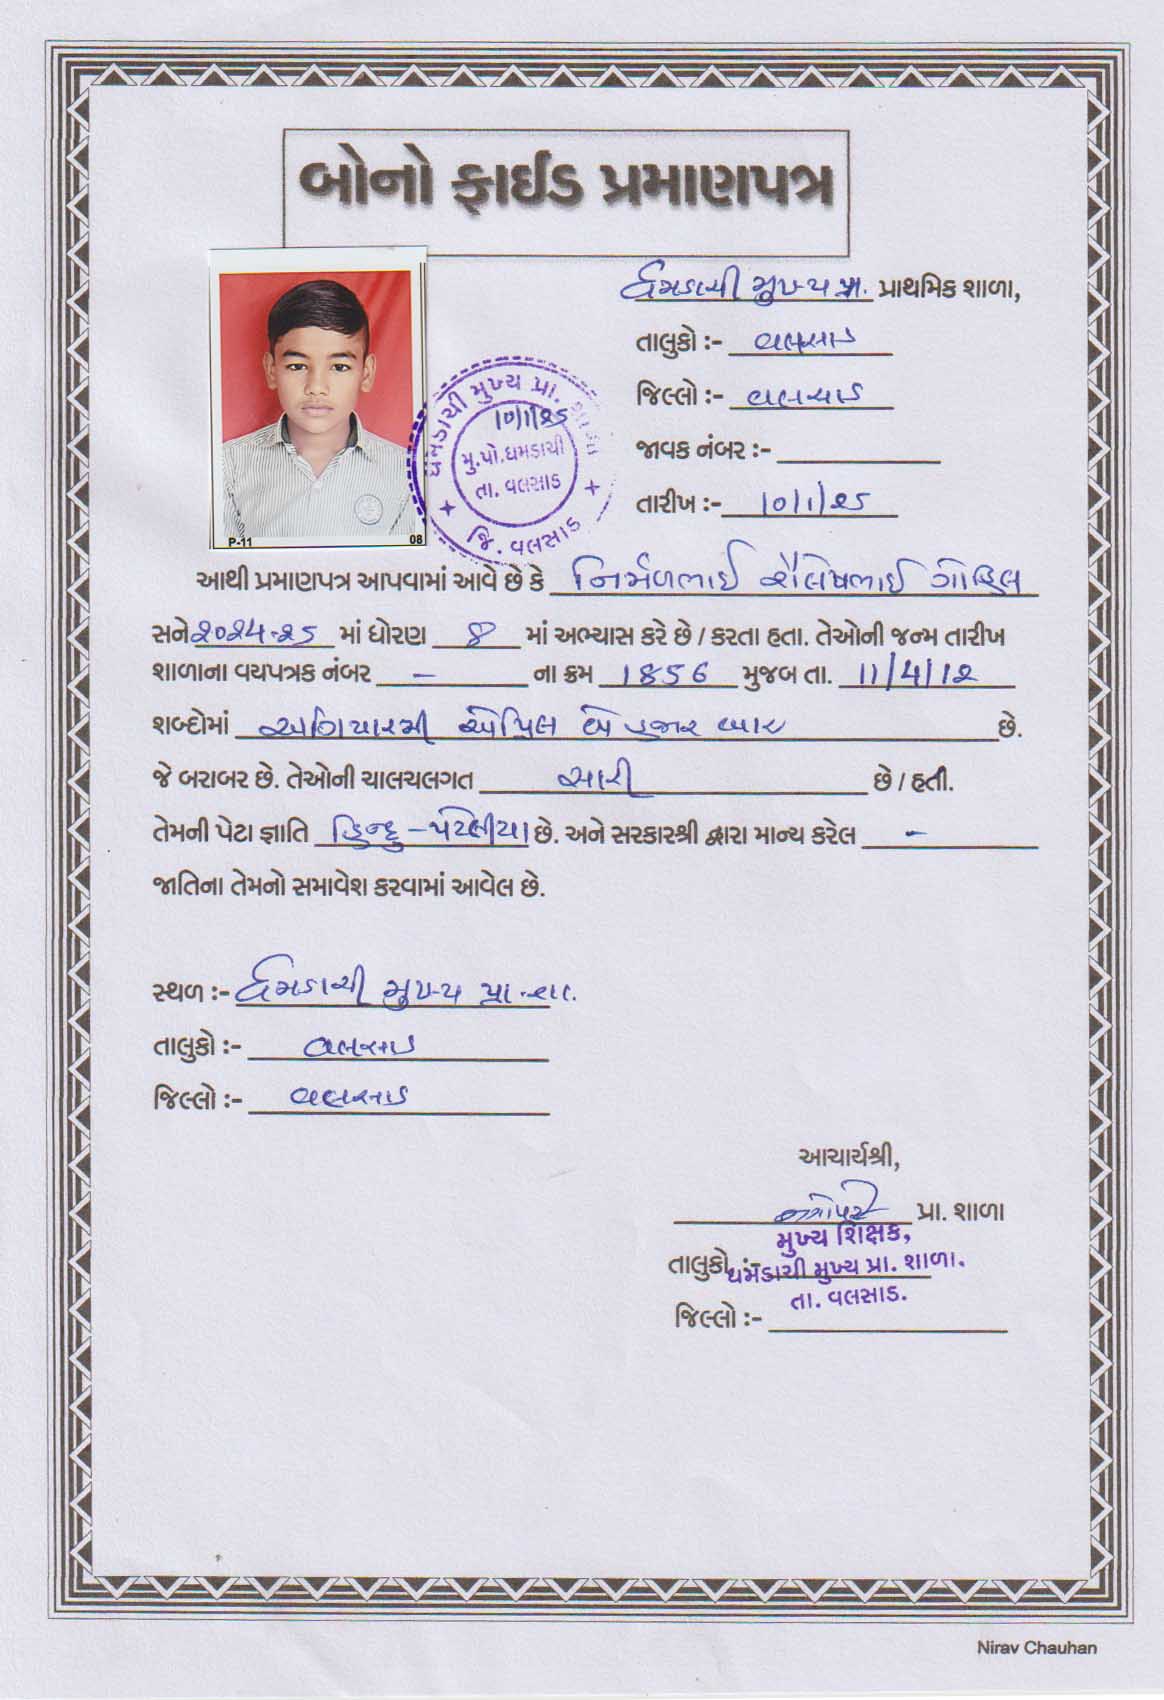 બોનો ફાઈડ પ્રમાણપત્ર
ધમડાચી મુખ્ય પ્રા. પ્રાથમિક શાળા,
તાલુકો :- વલસાડ
જિલ્લો :- વલસાડ
જાવક નંબર :-
તારીખ :- ૧૦/૧/૨૫
P-11 08
ધમડાચી મુખ્ય પ્રા. શાળા
૧૦/૧/૨૫
મુ.પો.ધમડાચી
તા. વલસાડ
જિ. વલસાડ
આથી પ્રમાણપત્ર આપવામાં આવે છે કે નિર્મળભાઈ શૈલેષભાઈ ગોહિલ
સને ૨૦૨૪-૨૫ માં ધોરણ ૮ માં અભ્યાસ કરે છે / કરતા હતા. તેઓની જન્મ તારીખ
શાળાના વયપત્રક નંબર - ના ક્રમ 1856 મુજબ તા. ૧૧/૪/૧૨
શબ્દોમાં અગિયારમી એપ્રિલ બે હજાર બાર છે.
જે બરાબર છે. તેઓની ચાલચલગત સારી છે / હતી.
તેમની પેટા જ્ઞાતિ હિન્દુ - પટેલીયા છે. અને સરકારશ્રી દ્વારા માન્ય કરેલ -
જાતિના તેમનો સમાવેશ કરવામાં આવેલ છે.
સ્થળ :- ધમડાચી મુખ્ય પ્રા. શા.
તાલુકો :- વલસાડ
જિલ્લો :- વલસાડ
આચાર્યશ્રી,
પ્રા. શાળા
મુખ્ય શિક્ષક,
તાલુકો :-
ધમડાચી મુખ્ય પ્રા. શાળા.
તા. વલસાડ.
જિલ્લો :-
Nirav Chauhan